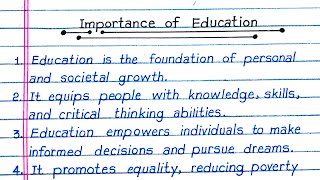 Importance of Education
1. Education is the foundation of personal
and societal growth.
2. It equips people with knowledge, skills,
and critical thinking abilities.
3. Education empowers individuals to make
informed decisions and pursue dreams.
4. It promotes equality, reducing poverty